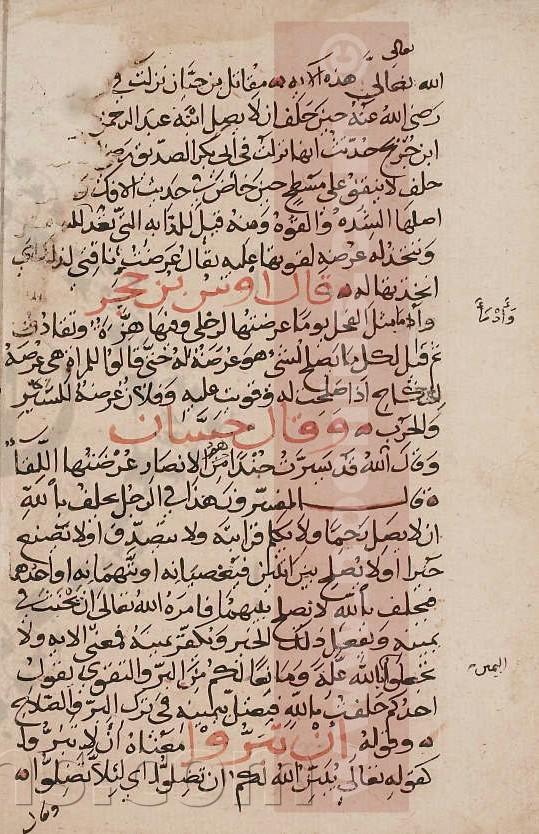 تعالى
الله تعالى هذه الآية مقاتل بن حيان نزلت في
رضي الله عنه حين حلف ان لا يصل ابنه عبد الرحمن
ابن جريج حدثت انها نزلت في ابي بكر الصديق
حلف لا ينفق على مسطح حين خاض في حديث الافك
اصلها الشدة والقوة ومنه قيل للدابة التي تعد للسفر
وتتخذ له عرضة لقوتها عليه يقال عرضت ناقتي لذلك اي
اتخذتها له قال اوس بن حجر
وأدماء مثل الفحل يوما عرضتها لرحلي وفيها هزة وتقاذف
ثم قيل لكل ما يصلح لشيء هو عرضة له حتى قالوا للمراة هي عرضة
للنكاح اذا صلحت له وقويت عليه وفلان عرضة للسفر
والحرب وقال حسان
وقال الله قد يسرت جندا هم الانصار عرضتها اللقاء
قال المفسرون هذا في الرجل يحلف بالله
ان لا يصل رحما ولا يكلم قرابته ولا يتصدق او لا يصنع
خيرا او لا يصلح بين اثنين فيعصيانه او يتهمانه او احدهما
فيحلف بالله لا يصلح بينهما فامره الله تعالى ان يحنث في
يمينه ويفعل ذلك الخير ويكفر يمينه فمعنى الاية ولا
تجعلوا الله علة ومانعا لكم من البر والتقوى يقول
احدكم حلفت بالله فيعتل بيمينه في ترك البر والصلاح
وقوله ان تبروا معناه ان لا تبروا
كقوله تعالى يبين الله لكم ان تضلوا اي لئلا تضلوا
وقال
وأدماء
اليمين